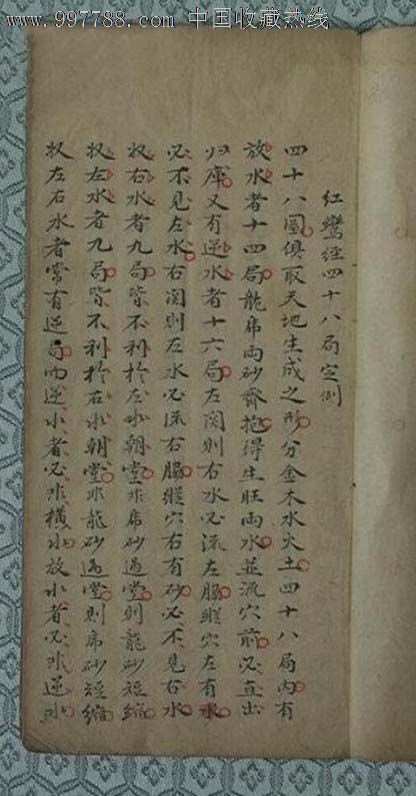 www.997788.com 中国收藏热线
红鸞经四十八局定例
四十八圖俱取天地生成之形分金木水火土四十八局內有
放水者十四局龍席兩砂齊抱得生旺兩水並流穴前必直出
归庫又有逆水者十六局左関則右水必流左腸縱穴左有水
必不見左水右関則左水必流右腸縱穴右有砂必不見右水
收右水者九局皆不利扵左水朝堂非席砂過堂則龍砂短縮
收左水者九局皆不利扵右水朝堂非龍砂過堂則席砂短縮
收左右水者常有逆局而逆水者必非橫水放水者必非逆水